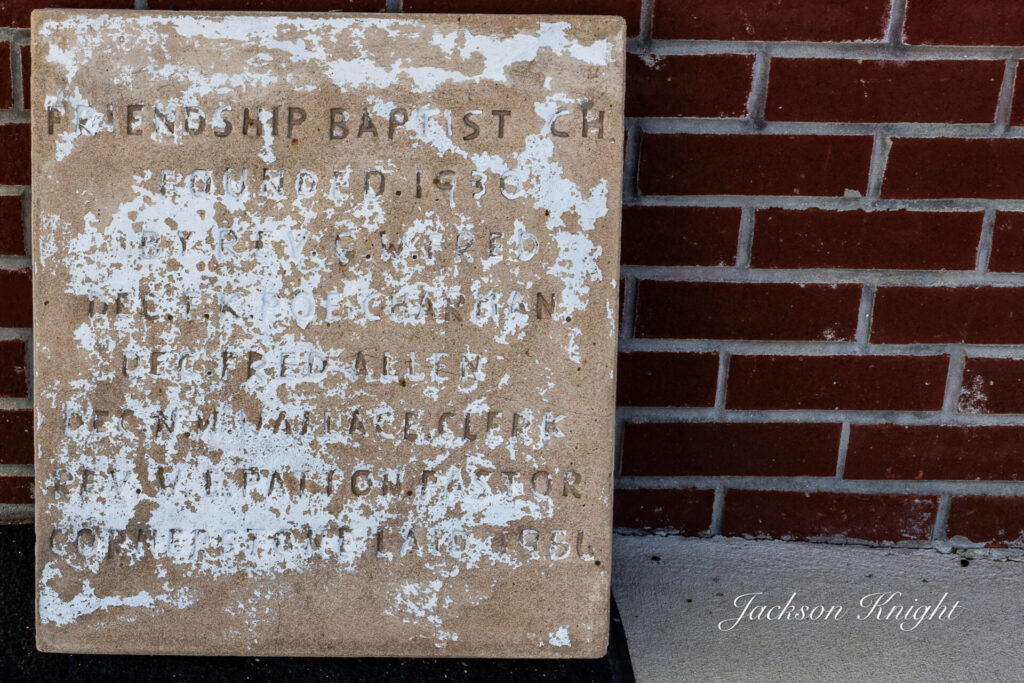 FRIENDSHIP BAPTIST CH.
FOUNDED. 1930
BY. REV. C. W. FRED
DEC. F. K. POE. CHARMAN.
DEC. FRED ALLEN
DEC. N. M. WALLACE. CLERK
REV. PATTON. PASTOR
CORNERSTONE LAID 1956
Jackson Knight